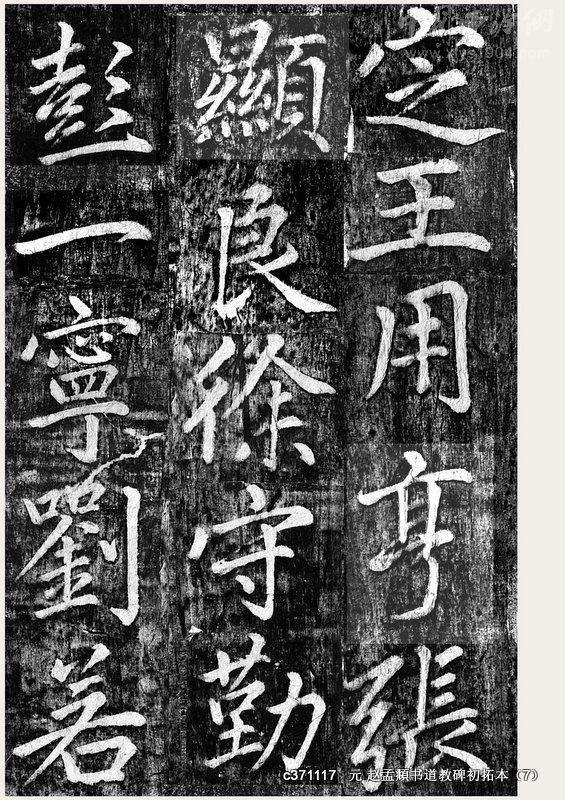 定王用亨張
顯良徐守勤
彭一寧劉若
c371117 元 赵孟頫书道教碑初拓本（7）